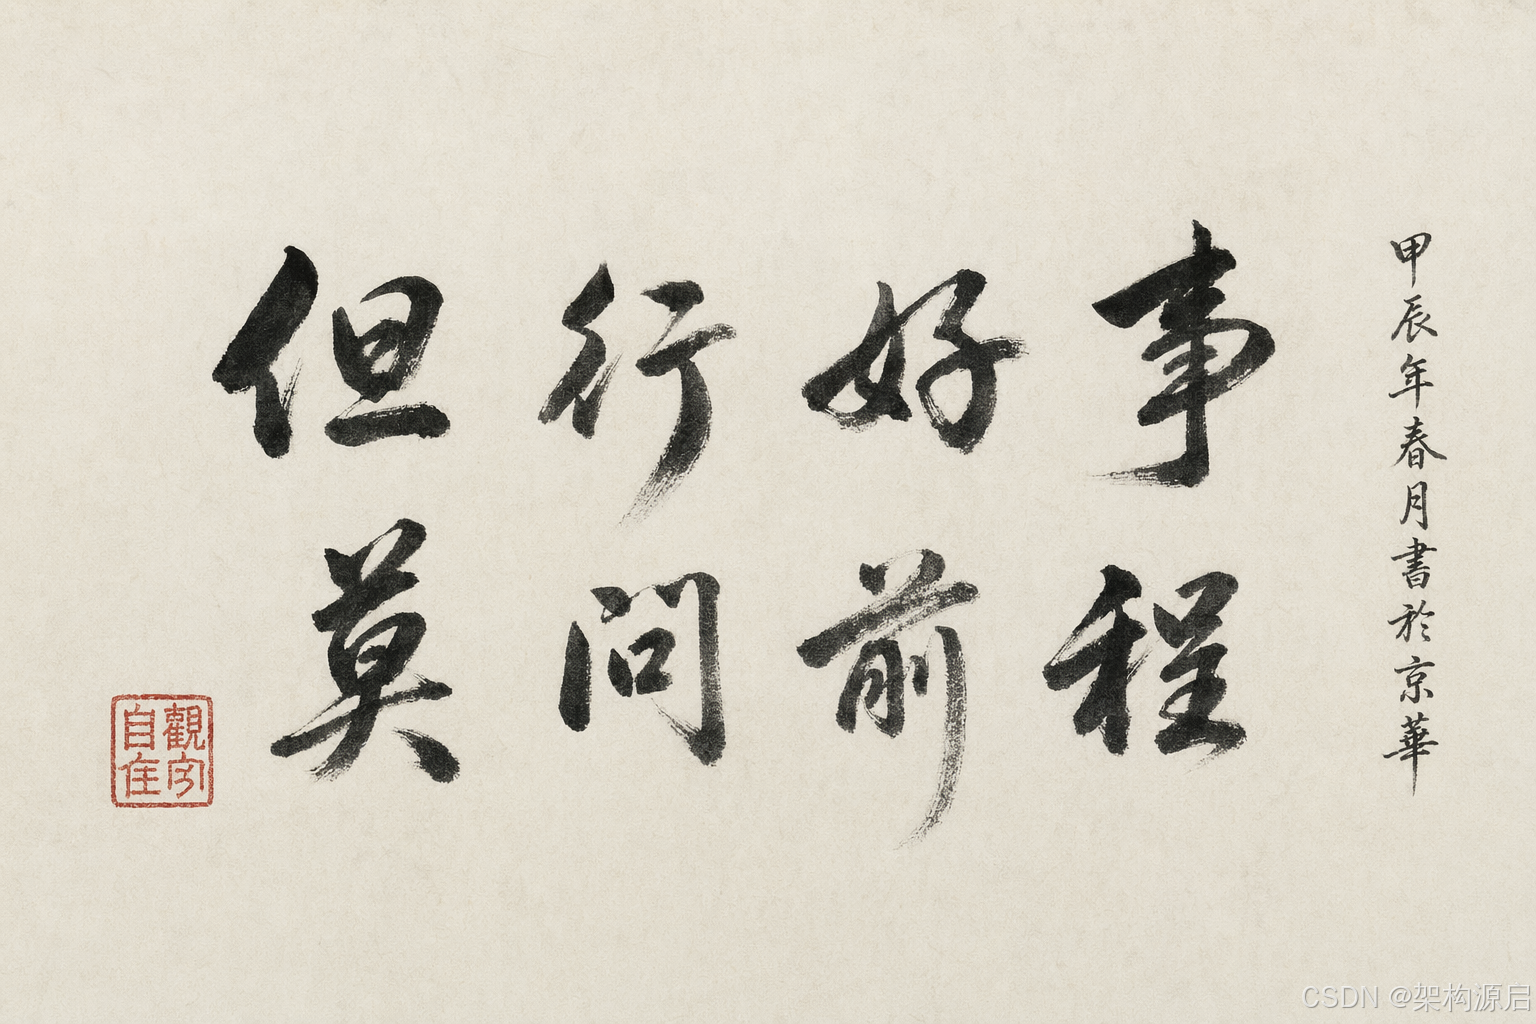 但行好事
莫问前程
甲辰年春月書於京華
觀
自在
CSDN @架构源启